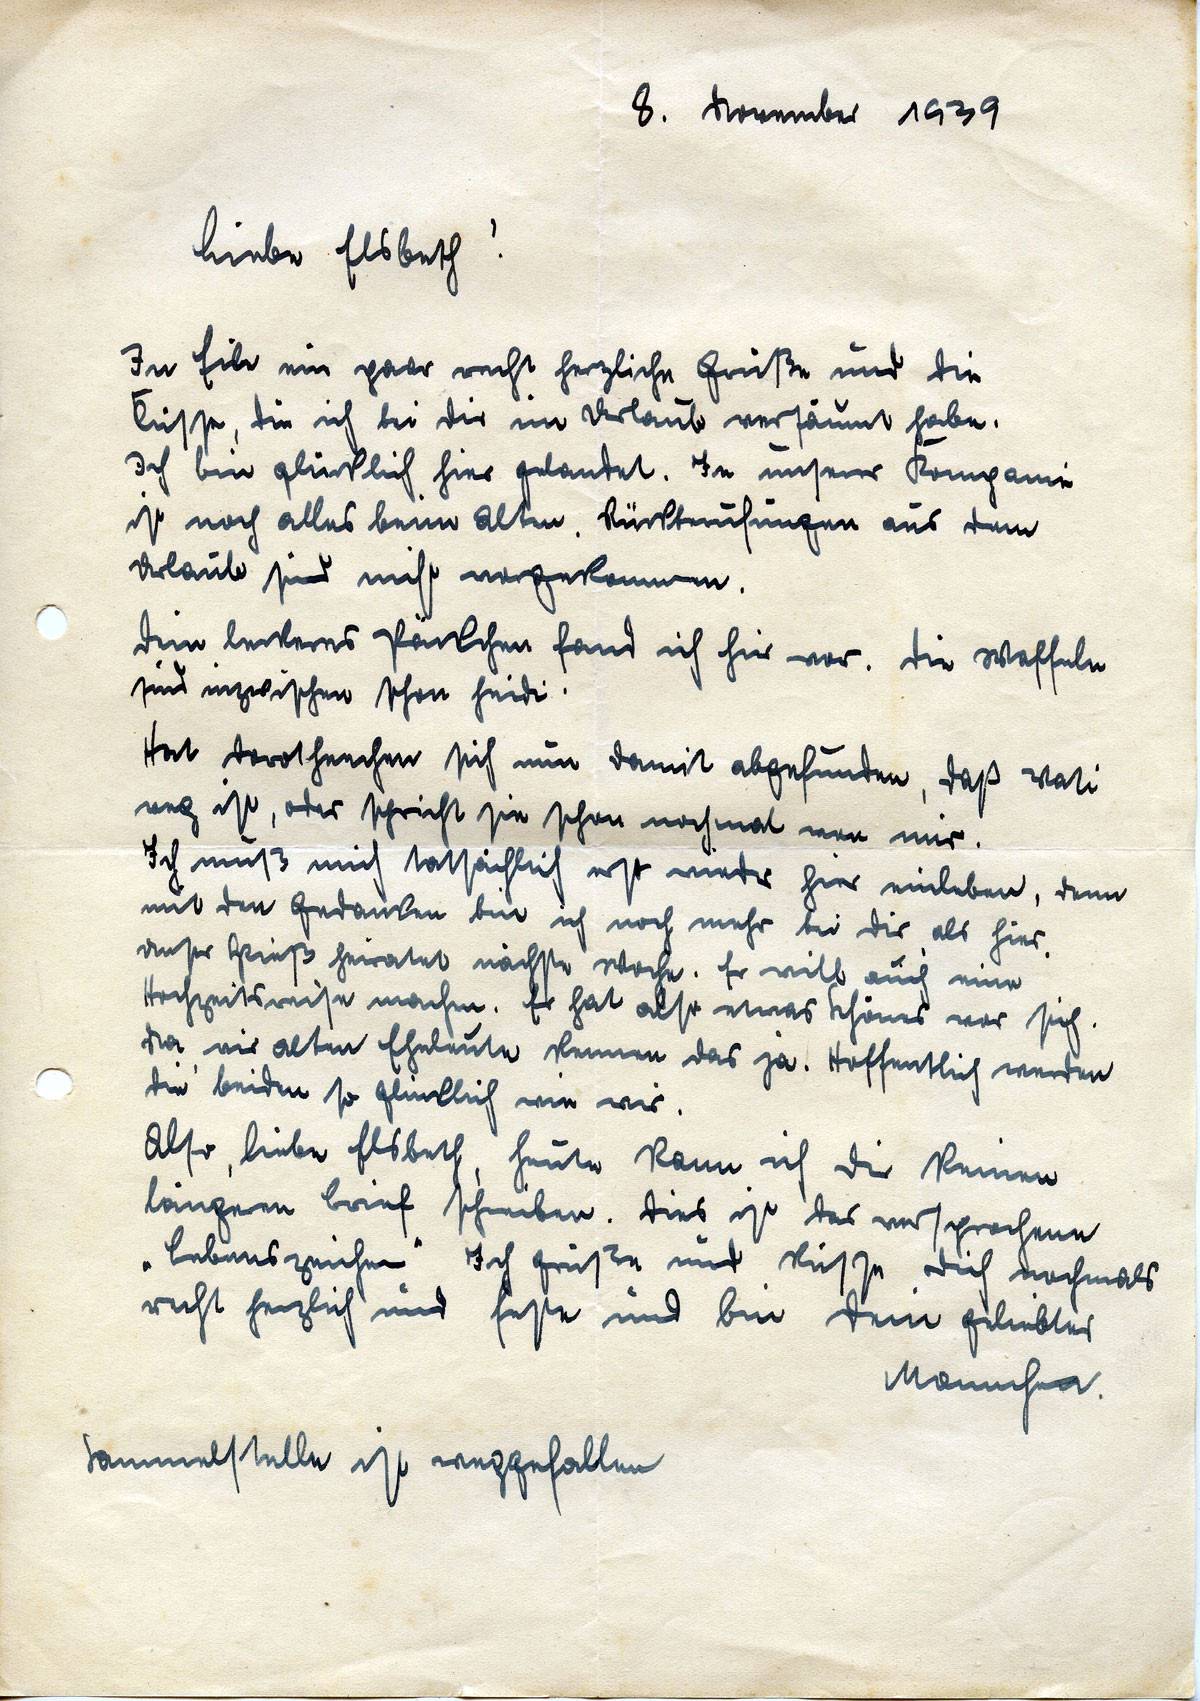 8. November 1939
Liebe Elsbeth!
In Eile ein paar recht herzliche Grüße und die
Küsse, die ich bei Dir im Urlaub versäumt habe.
Ich bin glücklich hier gelandet. In unserer Kompanie
ist noch alles beim Alten. Rückberufungen aus dem
Urlaub sind nicht vorgekommen.
Dein leckeres Päckchen fand ich hier vor. Die Waffeln
sind inzwischen schon heidi.
Hat Dorotheechen sich nun damit abgefunden, daß Vati
weg ist, oder spricht sie schon nochmal von mir.
Ich muß mich tatsächlich erst wieder hier einleben, denn
mit den Gedanken bin ich noch mehr bei Dir als hier.
Unser heiratet nächste Woche. Er will auch eine
Hochzeitsreise machen. Er hat also etwas Schönes vor sich.
Na, wir alten Eheleute kennen das ja. Hoffentlich werden
die beiden so glücklich wie wir.
Also, liebe Elsbeth, heute kann ich Dir keinen
längeren Brief schreiben. Dies ist das versprochene
„Lebenszeichen“ Ich grüße und küsse Dich nochmals
recht herzlich und feste und bin Dein geliebter
Männchen.
Sammelstelle ist weggefallen